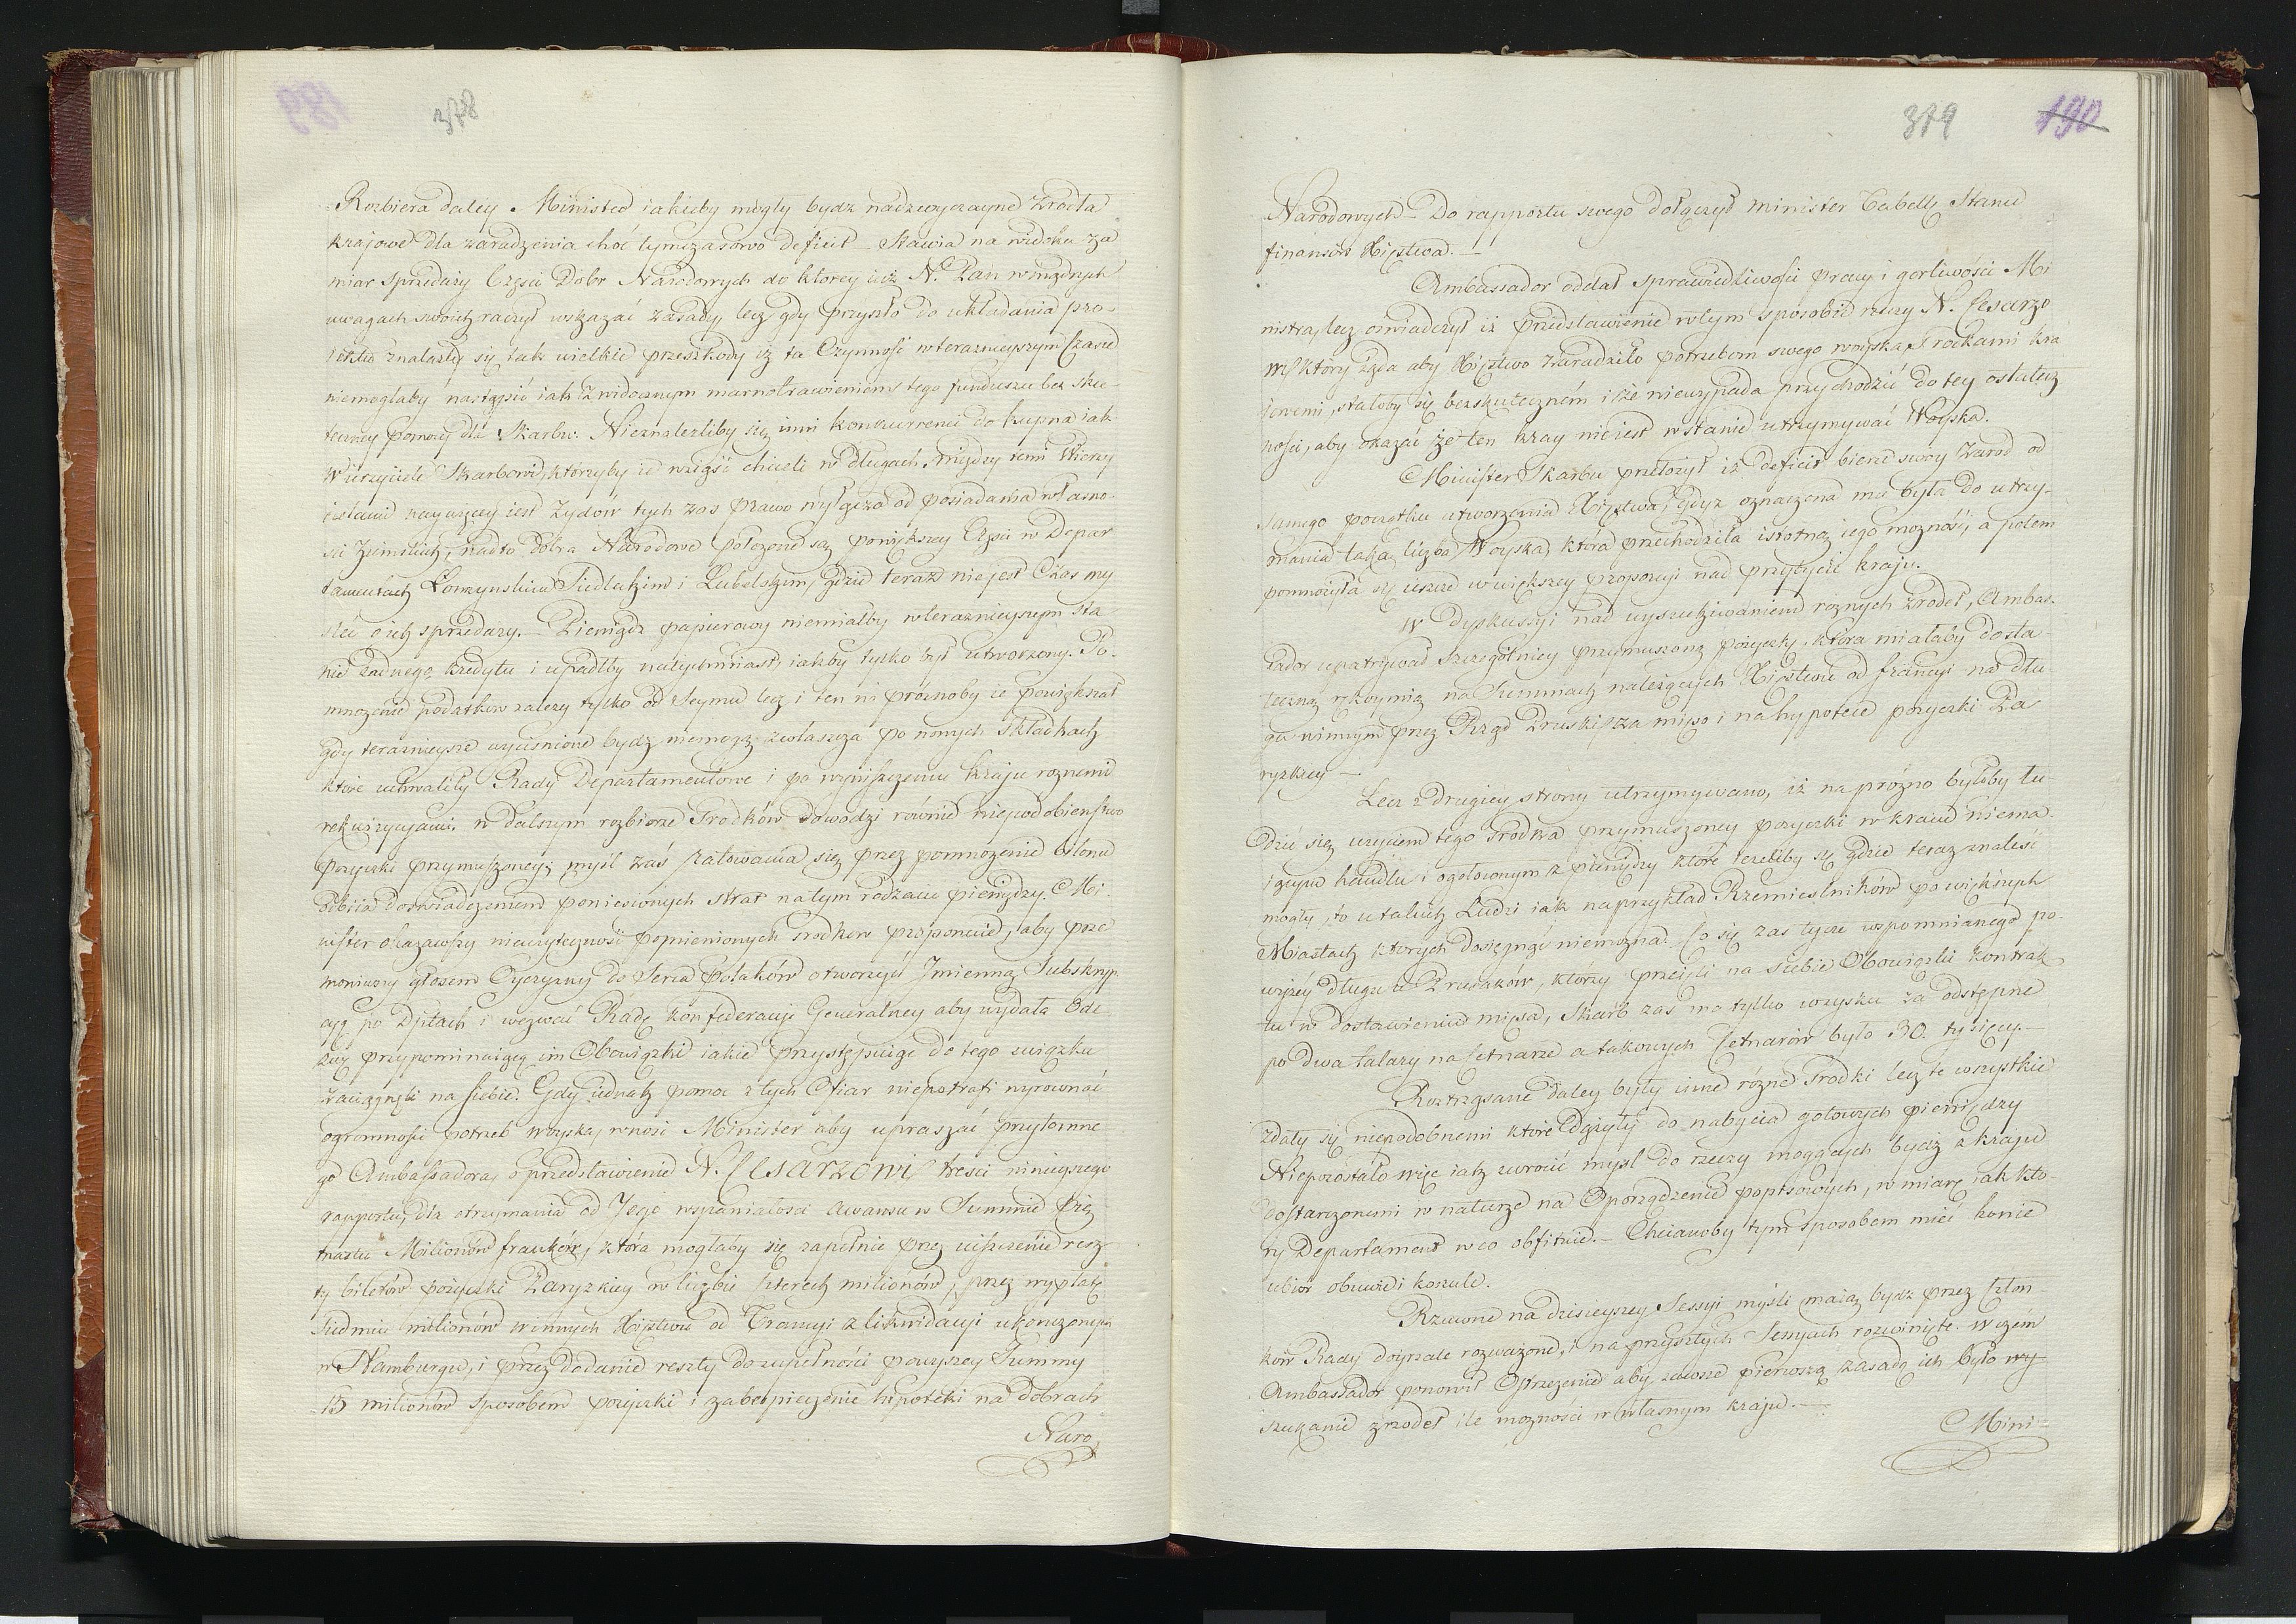 378
Rozbiera daley Minister iakieby mogły bydź nadzwyczayne źrodła
krajowe dla zaradzenia choć tymczasowo deficit – Stawia na widoku za
miar sprzedaży Częsci Dobr Narodowych do ktorey iuż N. Pan w mądrych
uwagach swoich raczył wskazać zasady, lecz gdy przyszło do układania pro-
iektu znalazły się tak wielkie przeszkody iż ta Czynność w teraznieyszym Czasie
niemogłaby nastąpić iak z widocznym marnotrawieniem tego funduszu bez sku-
teczney pomocy dla Skarbu. Nieznaleźliby się inni konkurrenci do kupna iak
Wierzyciele Skarbowi, którzyby ie wziąść chcieli w długach, między temi Wierzy
cielami naywięcey iest Żydów tych zas prawo wyłącza od posiadania własno-
ści Ziemskich, nadto dobra Narodowe położone są powiększey Częsci w Depar
tamentach Łomzynskim Siedleckim i Lubelskim, gdzie teraz niejest Czas my
sleć o ich sprzedazy. – Pieniądz papierowy niemiałby w teraznieyszym sta-
nie żadnego kredytu i upadłby natychmiast, iakby tylko był utworzony. Po-
mnożenie podatkow zależy tylko od Seymu lecz i ten na próżnoby ie powiększał
gdy teraznieysze uyiśnione bydz niemogą zwłaszcza po nowych Składkach
ktore uchwaliły Rady Departamentowe i po wyniszczeniu kraju roznemi
rekwizycyami. w dalszym rozbiorze Srodków dowodzi równie niepodobieństwo
pożyczki przymuszoney; myśl zaś ratowania się przez pomnożenie bilonu
odbiia doswiadczeniem poniesionych strat na tym rodzaiu pieniędzy. Mi-
nister okazawszy nieużyteczność pomienionych srodkow proponuie, aby prze
moniwszy głosem Oyczyzny do Serca Polaków otworzyć Jmienną Subskryp
cyą po Dptach i wezwać Radę konfederacyi Generalney aby wydała Ode
zwę przypominaiącą im Obowiązki iakie przystępuiąc do tego związku
zaciągnęli na siebie. Gdy iednak pomoc z tych Ofiar niepotrafi wyrownać
ogromności potrzeb woyska, wnosi Minister aby upraszać przytomne
go Ambassadora, o przedstawienie N. Cesarzowi tresci ninieyszego
rapportu, dla otrzymania od Jego wspaniałosci awansu w Summie Pię
tnastu Milionów franków, która mogłaby się zapełnić przez uiszczenie resz
ty biletów pożyczki Paryzkiey w liczbie czterech milionów, przez wypłatę
siedmiu milionów winnych Xięstwu od Francyi z likwidacyi ukonczoney
w Hamburgu, i przez dodanie reszty do zupełności powyższey Summy
15 milionów sposobem pożyczki i zabezpieczenie hipoteki na dobrach
Naro
379 190
Narodowych – Do rapportu swego dołączył Minister Tabellę Stanu
finansow Xięstwa. –
Ambassador oddał sprawiedliwość pracy i gorliwości Mi
nistra, lecz oświadczył iż przedstawienie w tym sposobie rzeczy N. Cesarzo
wi, który żąda aby Xięstwo zaradziło potrzebom swego woyska, Srodkami kra
jowemi, stałoby się bezskutecznem i że niewypada przychodzić do tey ostatecz
ności, aby okazać że ten kray nieiest w stanie utrzymywać Woyska.
Minister Skarbu przełożył iż deficit bierze swoy zarod od
samego początku utworzenia Xięstwa, Gdyz oznaczona mu była do utrzy-
mania taka liczba Woyska, która przechodziła istotną iego możność, a potem
pomnożyła się ieszcze w większey proporcyi nad przybycie kraju.
W Dyskussyi nad wyszukiwaniem różnych źrodeł, Ambas-
sador upatrywał szczególniey przymuszoną pożyczkę, która miałaby dosta-
teczną rękoymią na Summach należących Xięstwu od francyi na dłu
gu winnym przez Rząd Pruski za mięso i na hypotece pożyczki Pa
ryzkiey –
Lecz z drugiey strony utrzymywano, iż na próżno byłoby łu-
dzić się użyciem tego srodka przymuszoney pożyczki w kraiu niema-
iącym handlu i ogołoconym z pieniędzy które ieżeliby się gdzie teraz znaleść
mogły, to u takich Ludzi iak naprzykład Rzemieslników po większych
Miastach ktorych dosięgnąć niemożna. Co się zas tycze wspomnianego po-
wyżey długu u Prusaków, którzy przeięli na siebie Obowiązki kontrak
tu w dostawieniu mięsa, Skarb zas ma tylko w zysku za odstępne
po dwa talary na Cetnarze a takowych Cetnarów było 30. tysięcy. –
Roztrząsane daley były inne różne srodki lecz te wszystkie
zdały się niepodobnemi które dążyły do nabycia gotowych pieniędzy
Niepozostało więc iak zwrocić mysl do rzeczy mogących bydź z kraju
dostarczonemi w naturze na Oporządzenie popisowych, w miarę iak kto-
ry Departament w co obfituie. – Chcianoby tym sposobem mieć konie
ubior obuwie i koszule.
Rzucone na dzisieyszey Sessyi myśli maią bydz przez Człon-
ków Rady doyrzale rozważone, i na przyszłych Sessyach rozwinięte. W czem
Ambassador ponowił Ostrzeżenie aby zawsze pierwszą zasadą ich było wy-
szukanie zrzodeł ile mozności w własnym kraju. –
Mini-